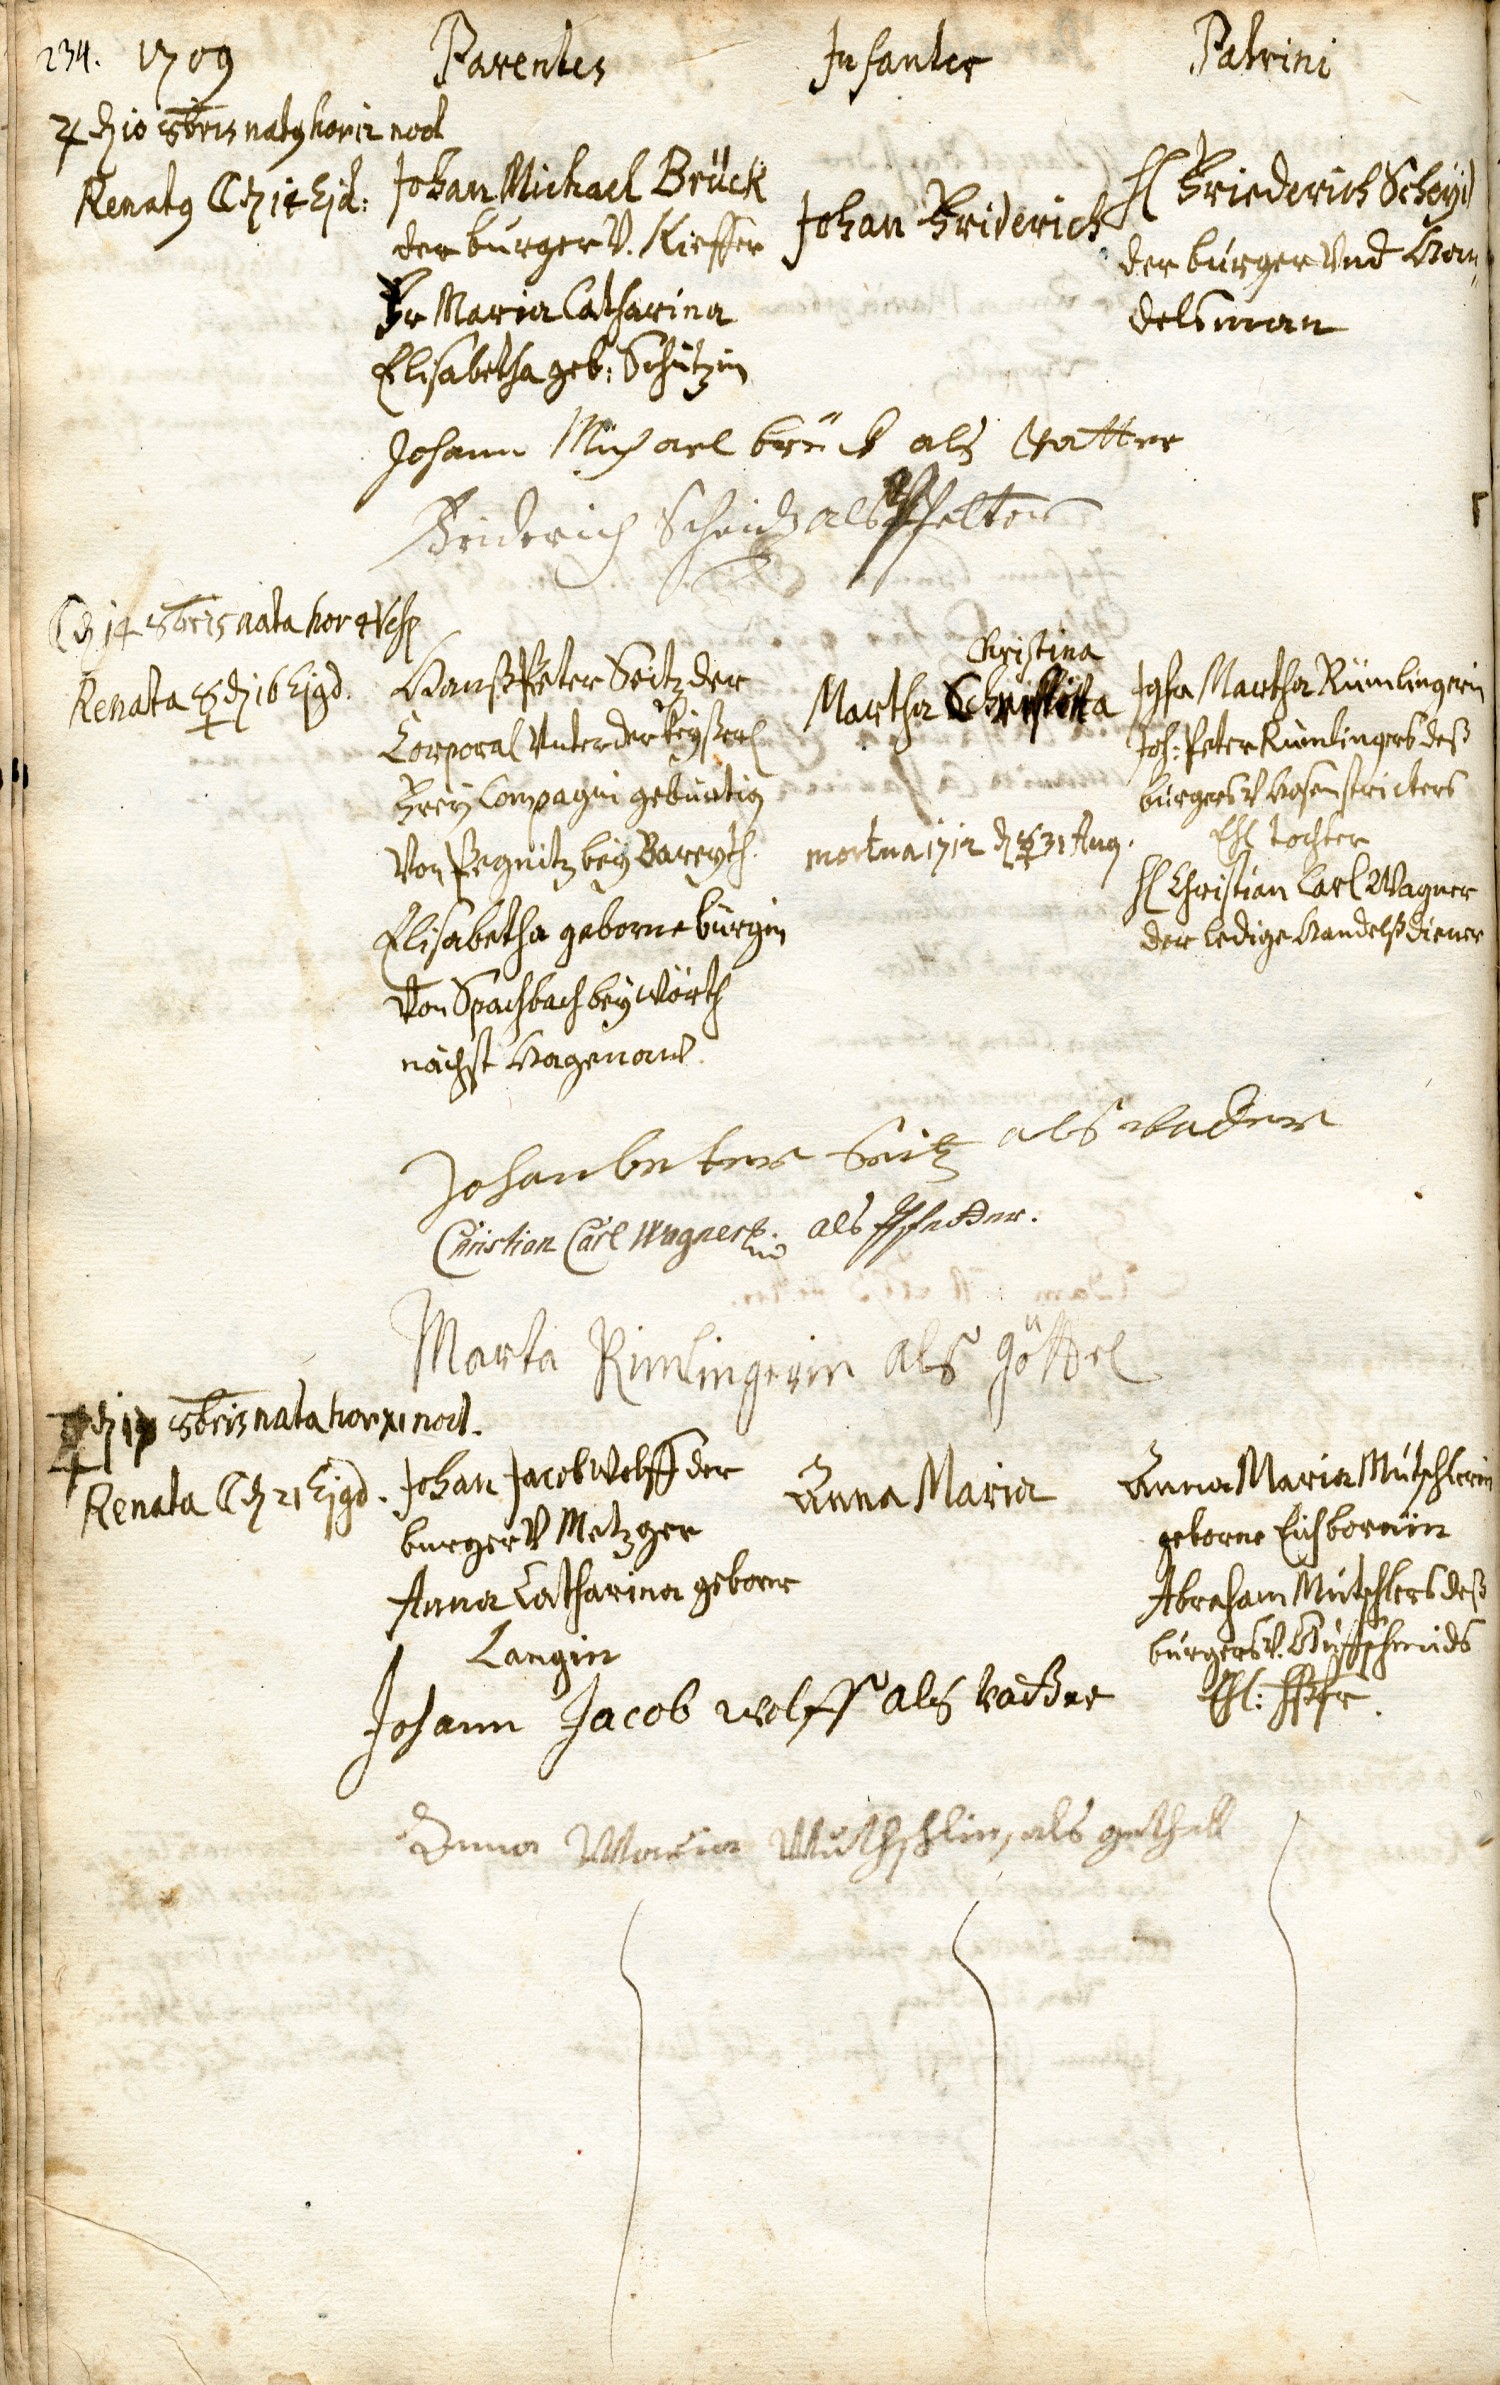 234. 1709 Parentes Infantes Patrini
♃ d 10 8bris natus hor 12 noct
Renatus ☾ d 14 Ejd:
Johan Michael Brück
der burger V. Kieffer
Fr Maria Catharina
Elisabetha geb: Schützin
Johan Friderich
H Friederich Scheyd
der burger Vnd Han„
delsman
Johann Michael brück als Vatter
Friderich Scheidt als Pfetter
☾ d 14 8bris nata hor 4 Vesp
Renata ☿ d 16 Ejgd.
Hanß Peter Seitz der
Corporal Vnter der Keyßerl
Frey Compagni gebürtig
Von Pegnitz bey Bareyth.
Elisabetha geborne bürgin
Von Spachbach bey Wörth
nächst Hagenaw.
Christina
Martha
mortua 1712 d ☿ 31 Aug.
Jgfr Martha Rümlingerin
Joh: Peter Rümlingers deß
burgers V Hosenstrickers
Ehl tochter
H Christian Carl Wagner
der ledige Handelßdiener
Johan beter Seitz als vader
Christian Carl Wagner als Pfetter.
Marta Rimlingerin als göttel
♃ d 17 8bris nata hor XI noct.
Renata ☾ d 21 Ejgd.
Johan Jacob Wolff der
burger V Metzger
Anna Catharina geborne
Langin
Anna Maria
Anna Maria Mutschlerin
geborne
Abraham Mutschlers deß
burgers V. Huffschmids
Ehl: Hßfr.
Johann Jacob wolff als vatter
Anna Maria Muthschlin, als gethell